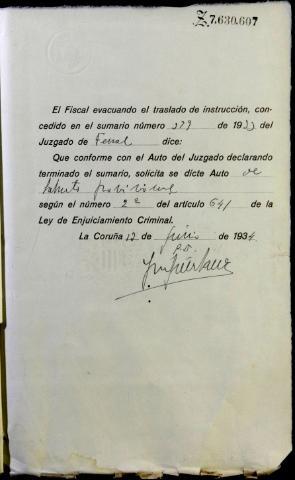 Z.7.630.607
El Fiscal evacuando el traslado de instrucción, con-
cedido en el sumario número 379 de 1933 del
Juzgado de Ferrol dice:
Que conforme con el Auto del Juzgado declarando
terminado el sumario, solicita se dicte Auto de
según el número 2º del artículo 641 de la
Ley de Enjuiciamiento Criminal.
La Coruña 12 de de 1934
P.D.